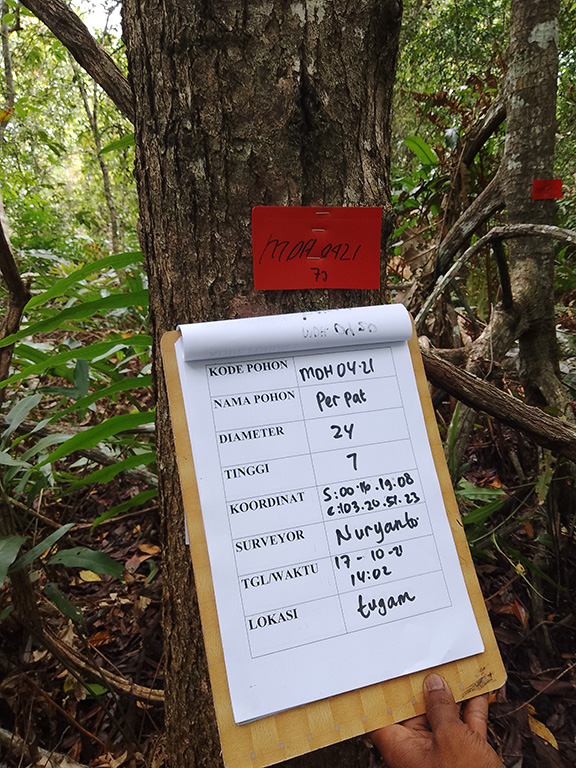 MDH_0421
73
KODE POHON MDH 04.21
NAMA POHON Per pat
DIAMETER 24
TINGGI 7
KOORDINAT S:00.10.19.08
E:103.20.51.23
SURVEYOR Nuryanto
TGL/WAKTU 17-10-21
14:02
LOKASI tugam